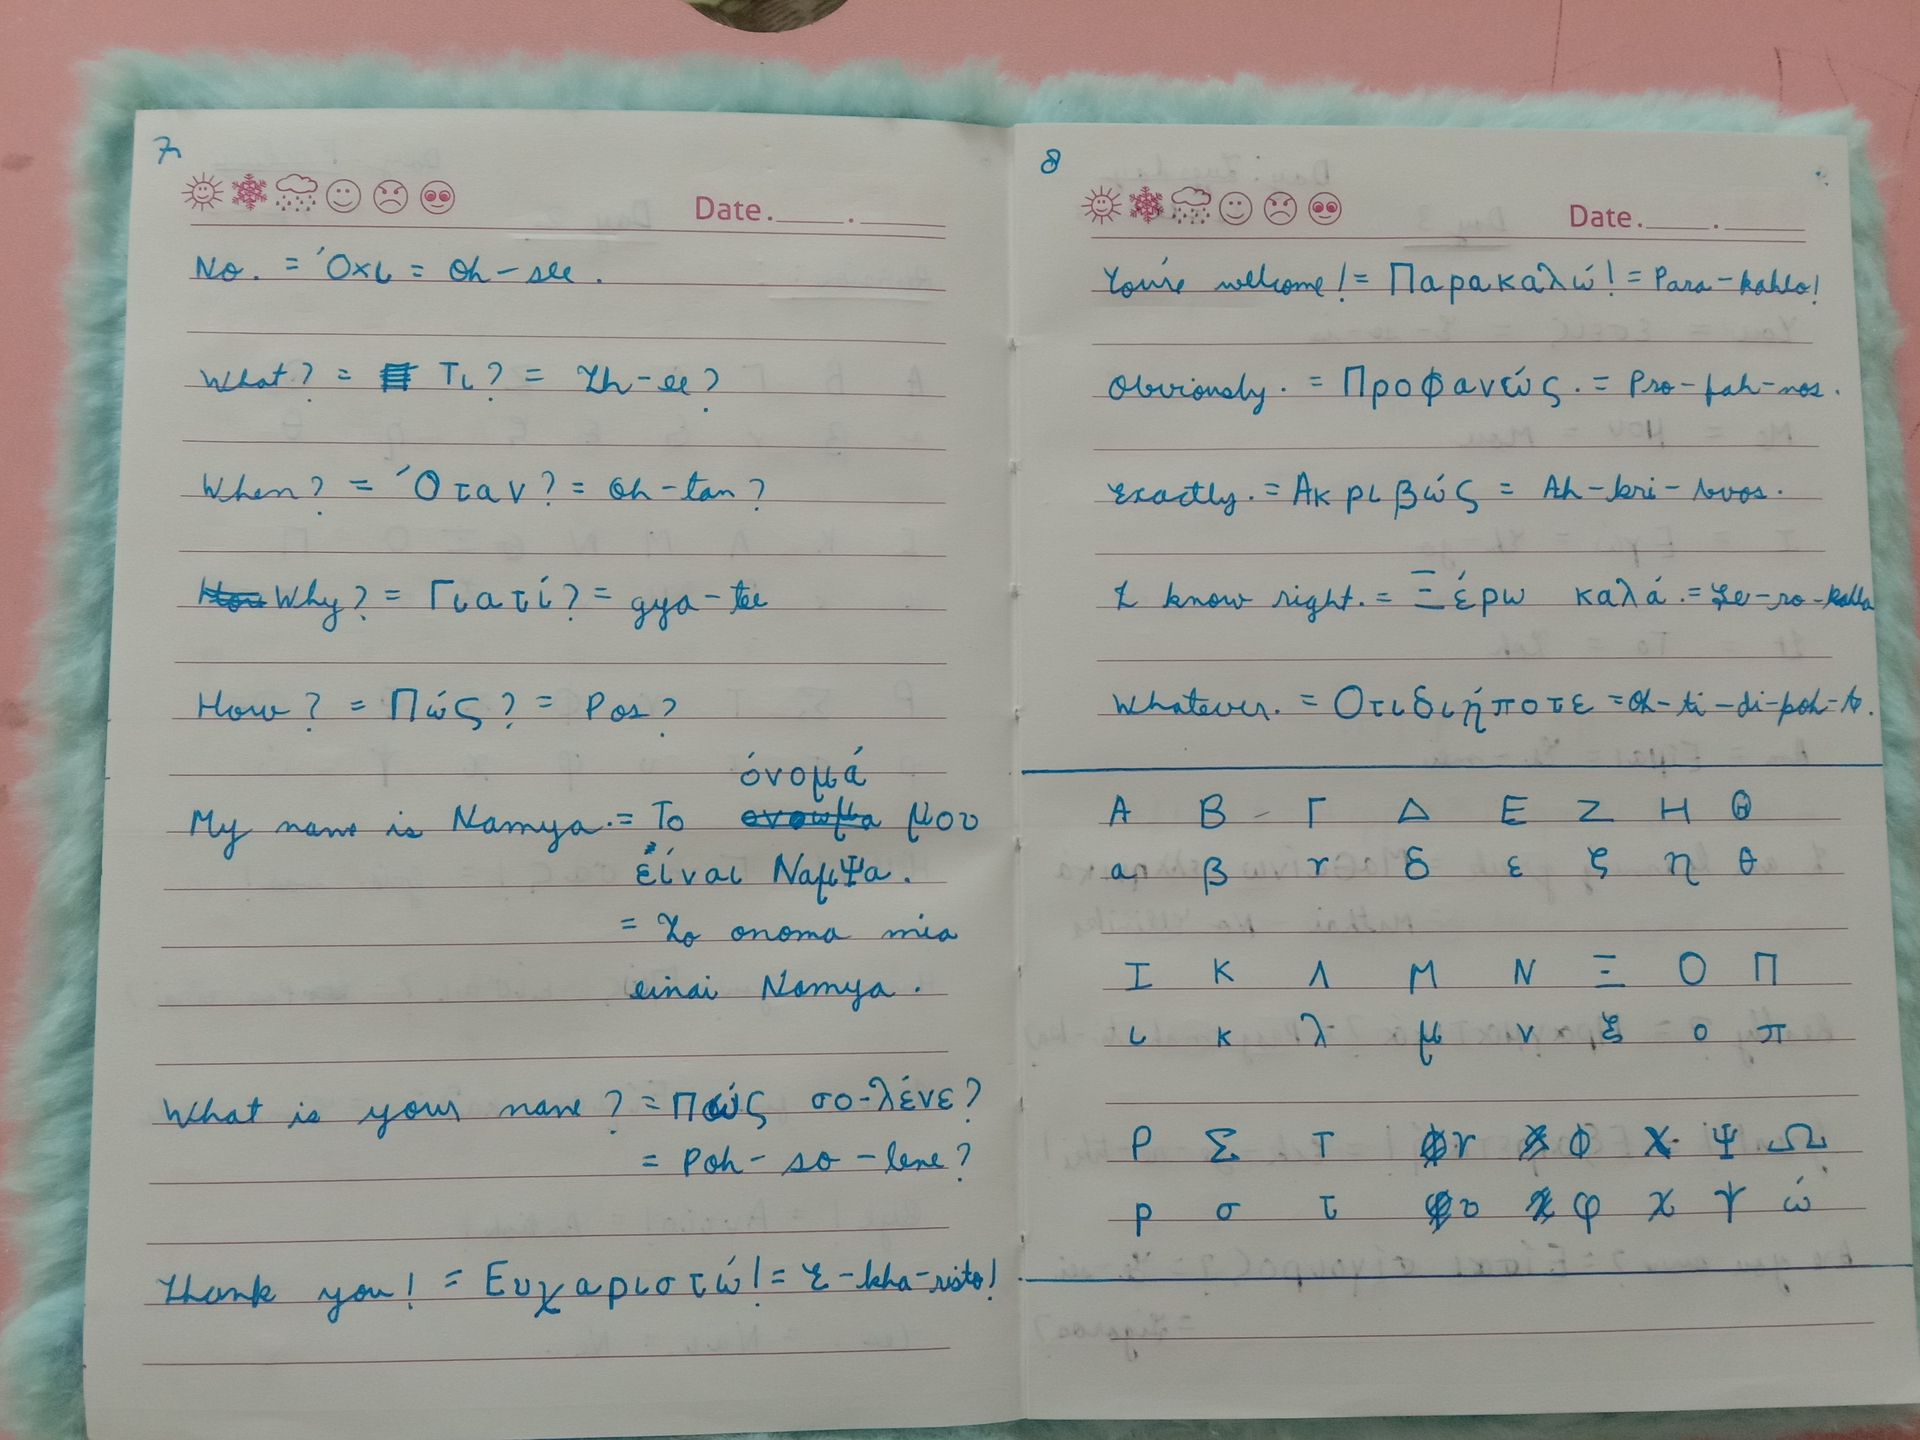 7
Date.
No. = Όχι = Oh - see.
What? = Τι? = Th - ee?
When? = Όταν? = Oh - tan?
Why? = Γιατί? = gya - tee
How? = Πώς? = Pos?
όνομά
My name is Namya. = Το μου
είναι ΝαμΨα.
= To onoma mia
einai Namya.
What is your name? = Πώς σο-λένε?
= Poh - so - lene?
Thank you! = Ευχαριστώ! = E - kha - risto!
8
Date.
You're welcome! = Παρακαλώ! = Para - kahlo!
Obviously. = Προφανώς. = Pro - fah - nos.
Exactly. = Ακριβώς = Ah - kri - vos.
I know right. = Ξέρω καλά. = Xe - ro - kahla
Whatever. = Οτιδιήποτε = Oh - ti - di - poh - te.
Α Β Γ Δ Ε Ζ Η Θ
α β γ δ ε ζ η θ
Ι Κ Λ Μ Ν Ξ Ο Π
ι κ λ μ ν ξ ο π
Ρ Σ Τ Υ Φ Χ Ψ Ω
ρ σ τ υ φ χ ψ ώ